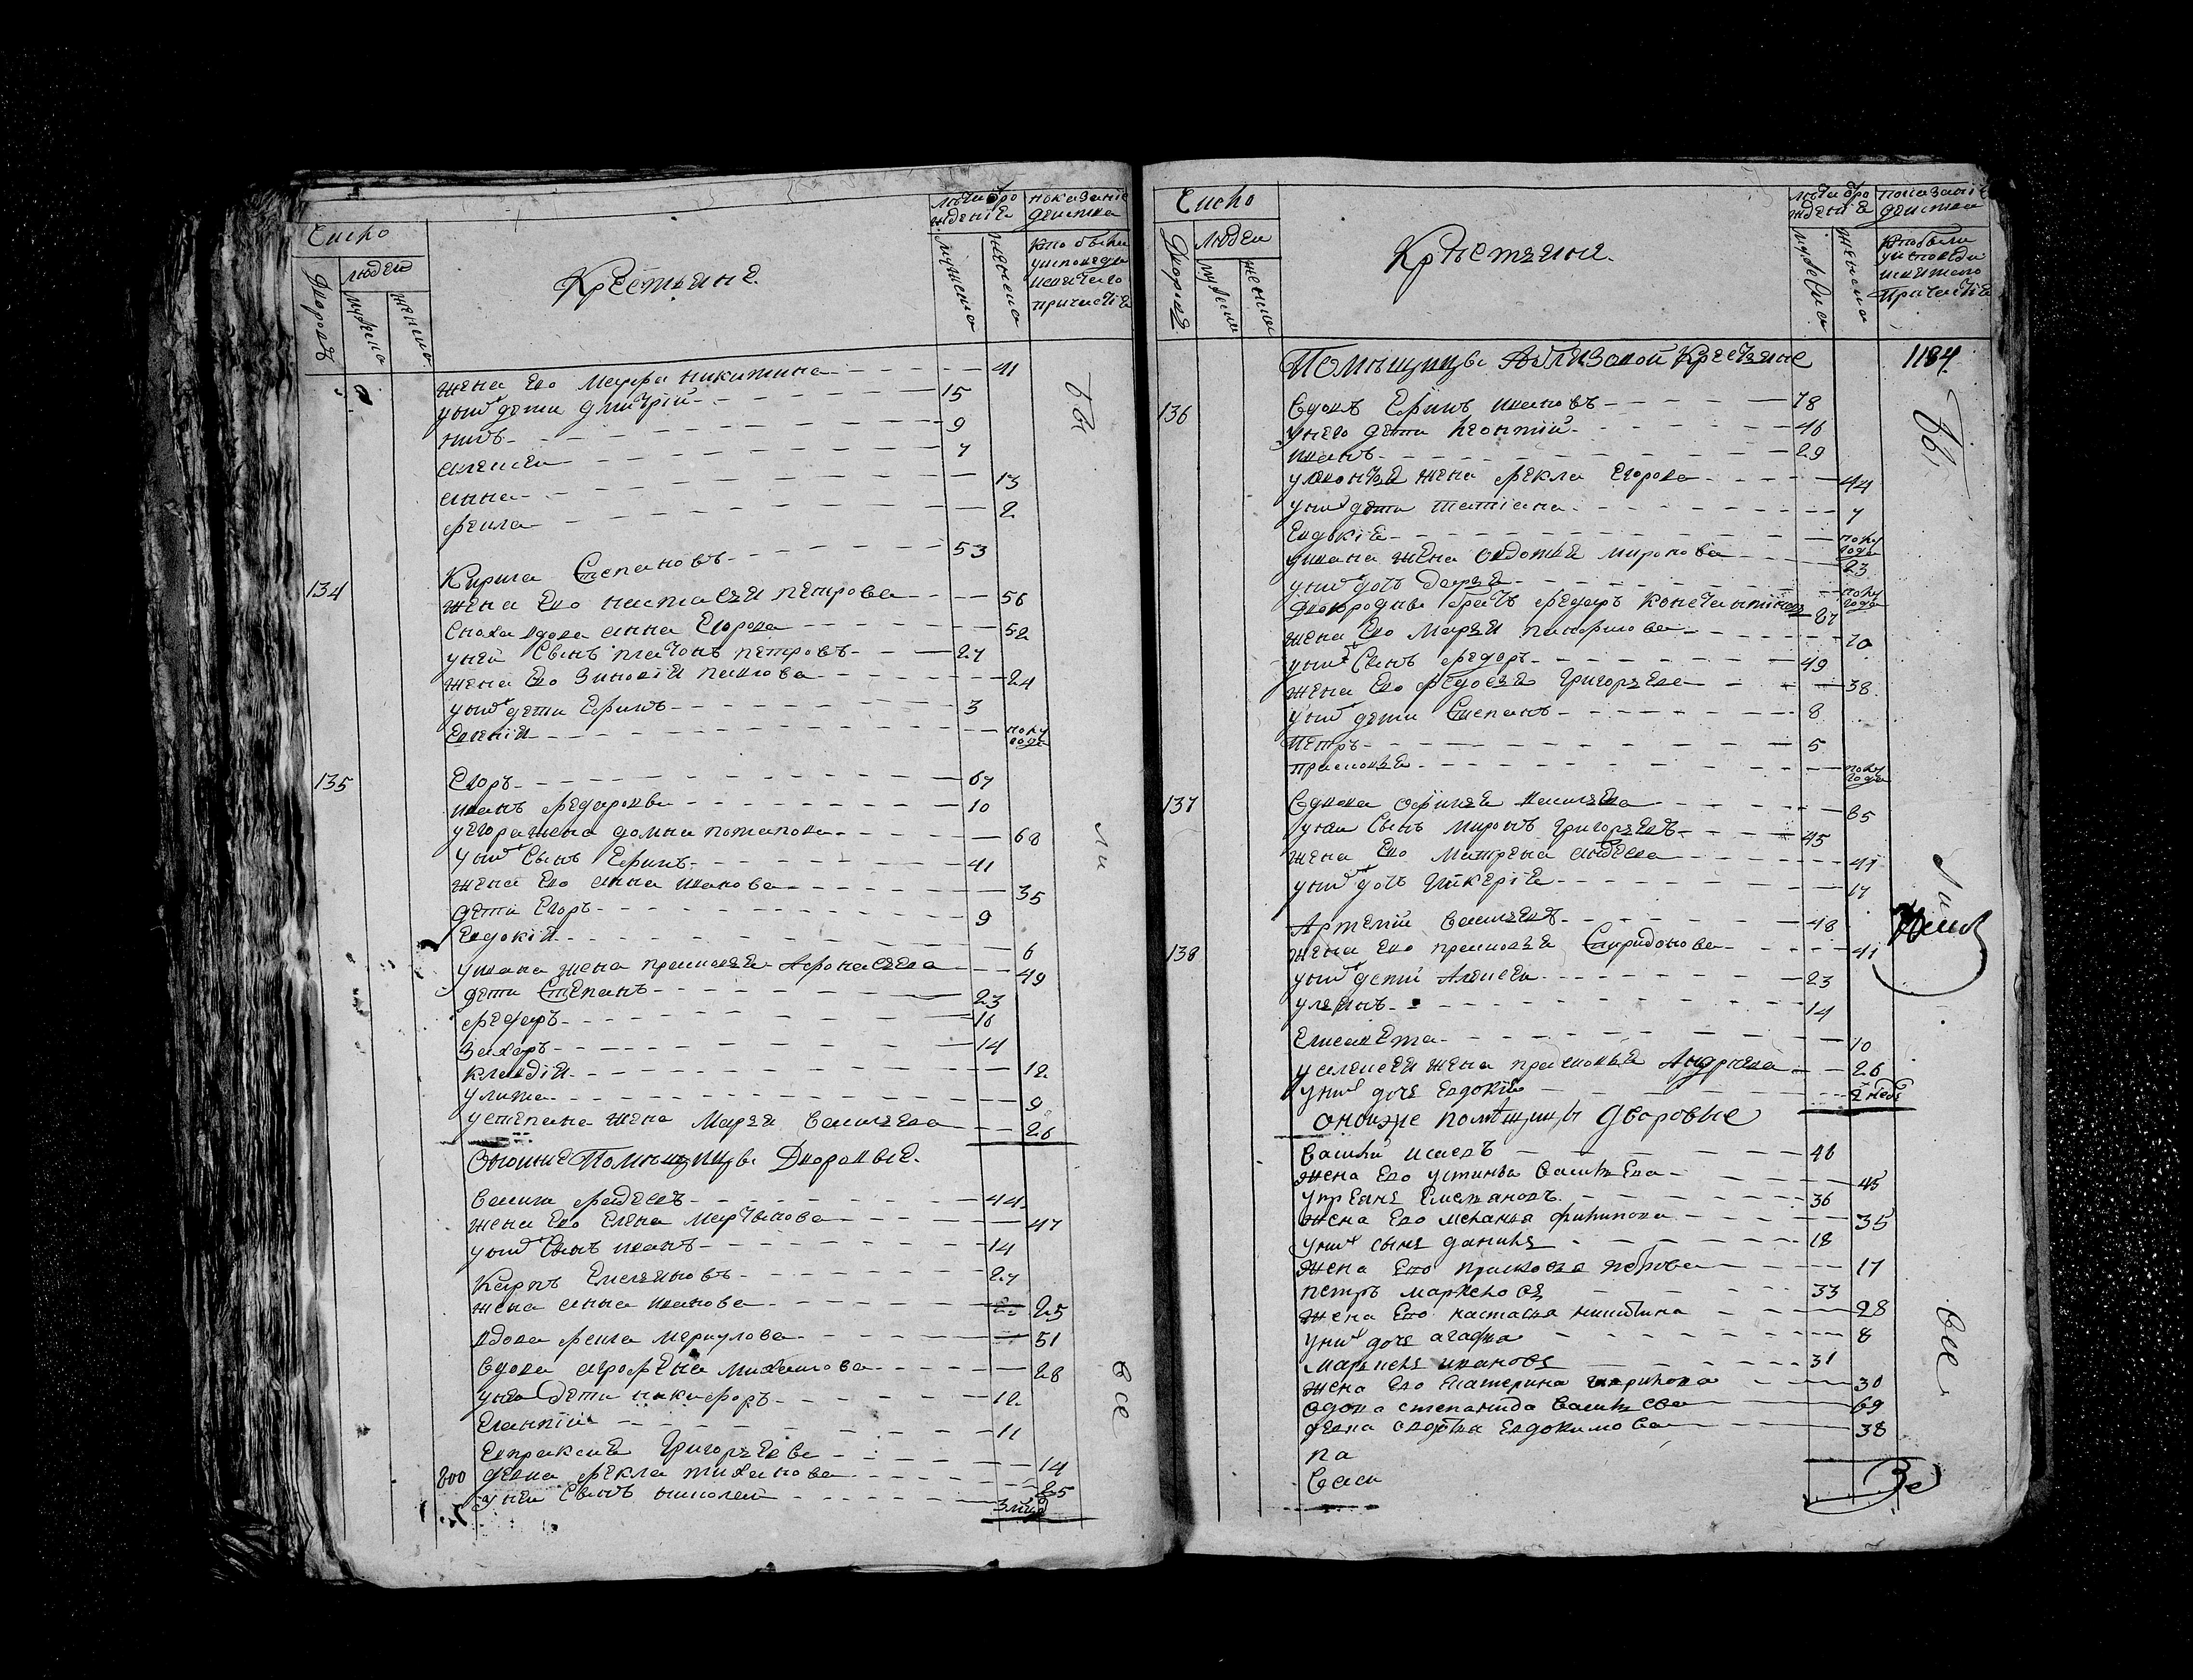 Число
Дворовъ
людей
мужеска
женска
Крестьяне
лѣта от рожденiя
мужеска
женска
показанiе действа
кто были у исповеди и святаго причастiя
жена Ево Марфа никитина 41
у них дети дмитрiй 15
9
алексеи 7
анна 13
фекла 2
были
134 Кирила Степановъ 53
жена Ево настасья петрова 56
сноха вдова анна Егорова 52
у ней Сынъ платонъ петровъ 27
жена Ево Зиновiя павлова 24
у них дети Ефимъ 3
Евгенiя полу года
135 Егоръ 67
иванъ федоровы 10
у Егора жена домна потапова 68
у них Сынъ Ефимъ 41
жена Ево анна иванова 35
дети Егоръ 9
Евдокiя 6
у ивана жена прасковья Афонасьева 49
дети Степанъ 23
федоръ 16
Захаръ 14
клавдiя 12
улита 9
у степана жена Марья Васильева 26
Оной же Помѣщицы Дворовые
Василий фадеевъ 44
жена Ево Елена Мартынова 47
у них Сынъ иванъ 14
Карпъ Емельяновъ 27
жена анна иванова 25
вдова фекла меркулова 51
вдова агрофена михаилова 28
у нея дети никифоръ 12
11
Евпраксия Григорьева 14
800 девка фекла тиханова 25
у неи Сынъ николаи 3 мца
ли
все
Число
Дворовъ
людей
мужеска
женска
Крѣстьяне
лѣта от рожденiя
мужеска
женска
показанiе действа
кто были у исповеди и святаго причастiя
1184
Помѣщицы Аблязовой Крестьяне
136 Вдовъ Ефимъ ивановъ 78
у него дети леонтiй 46
иванъ 29
у леонтья жена фекла Егорова 44
у них дети татiана 7
Евдокiя полу года
у ивана жена Овдотья миронова 23
у них дочь дарья полу года
двоюродны братъ федоръ Констянтiновъ 87
жена Ево Марья панфилова 70
у них Сынъ федоръ 49
жена Ево федосья Григорьева 38
у них дети Степанъ 8
Петръ 5
прасковья полу года
137 Вдова Офимья васильева 65
у нея Сынъ миронъ Григорьевъ 45
жена Ево Матрена авдеева 41
у них дочь Гликерiя 17
Артемiй Васильевъ 48
138 жена Ево прасковья Спиридонова 41
у них дети Алексеи 23
ульянъ 14
Елисавета 10
у алексея жена прасковья Андреева 26
у них дочь Евдокiя 2 неде
оной же помѣщицы дворовые
Василй исаевъ 46
жена Ево устинья Васильева 45
Емельяновъ 36
жена Ево меланья филипова 35
у них сынъ данила 18
жена Ево прасковья петрова 17
петръ маркеловъ 33
жена Ево настасья никитина 28
у них дочь агафья 8
маркелъ ивановъ 31
жена Ево Екатерина гаврилова 30
вдова степанида Васильева 69
девка овдотья Евдокимова 38
па
Васи
бы
ли
все